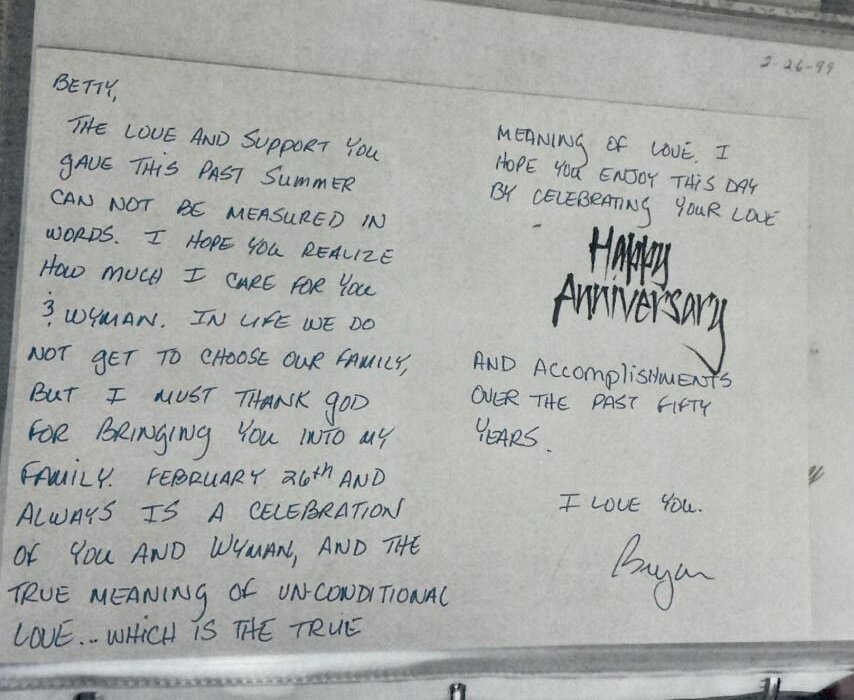 2-26-99
BETTY,
THE LOVE AND SUPPORT YOU
GAVE THIS PAST SUMMER
CAN NOT BE MEASURED IN
WORDS. I HOPE YOU REALIZE
HOW MUCH I CARE FOR YOU
& WYMAN. IN LIFE WE DO
NOT GET TO CHOOSE OUR FAMILY,
BUT I MUST THANK GOD
FOR BRINGING YOU INTO MY
FAMILY. FEBRUARY 26th AND
ALWAYS IS A CELEBRATION
OF YOU AND WYMAN, AND THE
TRUE MEANING OF UN-CONDITIONAL
LOVE... WHICH IS THE TRUE
MEANING OF LOVE. I
HOPE YOU ENJOY THIS DAY
BY CELEBRATING YOUR LOVE
Happy
Anniversary
AND ACCOMPLISHMENTS
OVER THE PAST FIFTY
YEARS.
I LOVE YOU.
Bryan